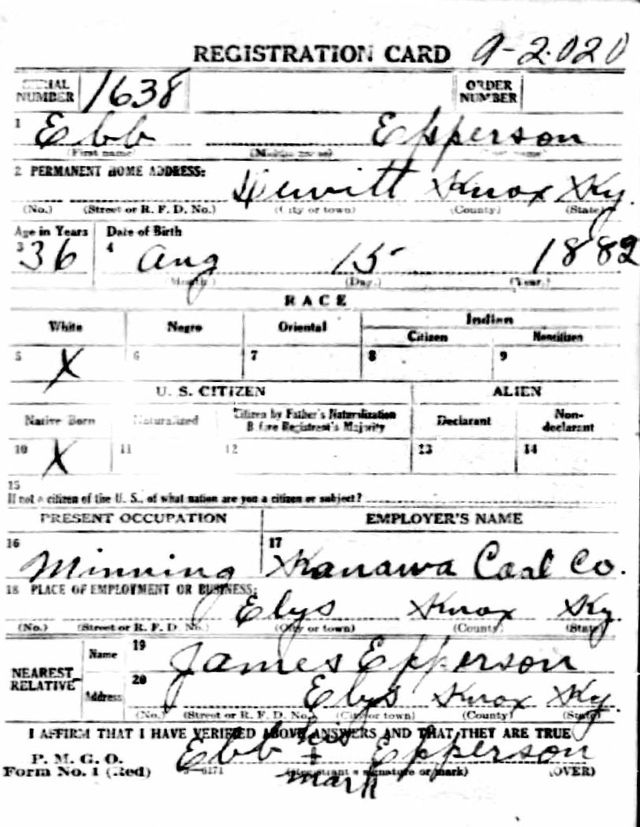 REGISTRATION CARD 9-2.020
SERIAL NUMBER 1638 ORDER NUMBER
1 Ebb Epperson
(First name) (Middle name)
2 PERMANENT HOME ADDRESS: Dewitt Knox Ky.
(No.) (Street or R. F. D. No.) (City or town) (County) (State)
Age in Years Date of Birth
3 36 4 Aug 15 1882
(Month) (Day.) (Year.)
RACE
White Negro Oriental Indian
Citizen Noncitizen
5 X 6 7 8 9
U. S. CITIZEN ALIEN
Native Born Naturalized Citizen by Father's Naturalization Before Registrant's Majority Declarant Non-declarant
10 X 11 12 13 14
15
If not a citizen of the U. S., of what nation are you a citizen or subject?
PRESENT OCCUPATION EMPLOYER'S NAME
16 Minning 17 Kanawa Coal Co.
18 PLACE OF EMPLOYMENT OR BUSINESS: Elys Knox Ky.
(No.) (Street or R. F. D. No.) (City or town) (County) (State)
NEAREST RELATIVE Name 19 James Epperson
Address 20 Elys Knox Ky.
(No.) (Street or R. F. D. No.) (City or town) (County) (State)
I AFFIRM THAT I HAVE VERIFIED ABOVE ANSWERS AND THAT THEY ARE TRUE
P. M. G. O. Ebb his + mark Epperson
Form No. 1 (Red) 3-6171 (Registrant's signature or mark) (OVER)